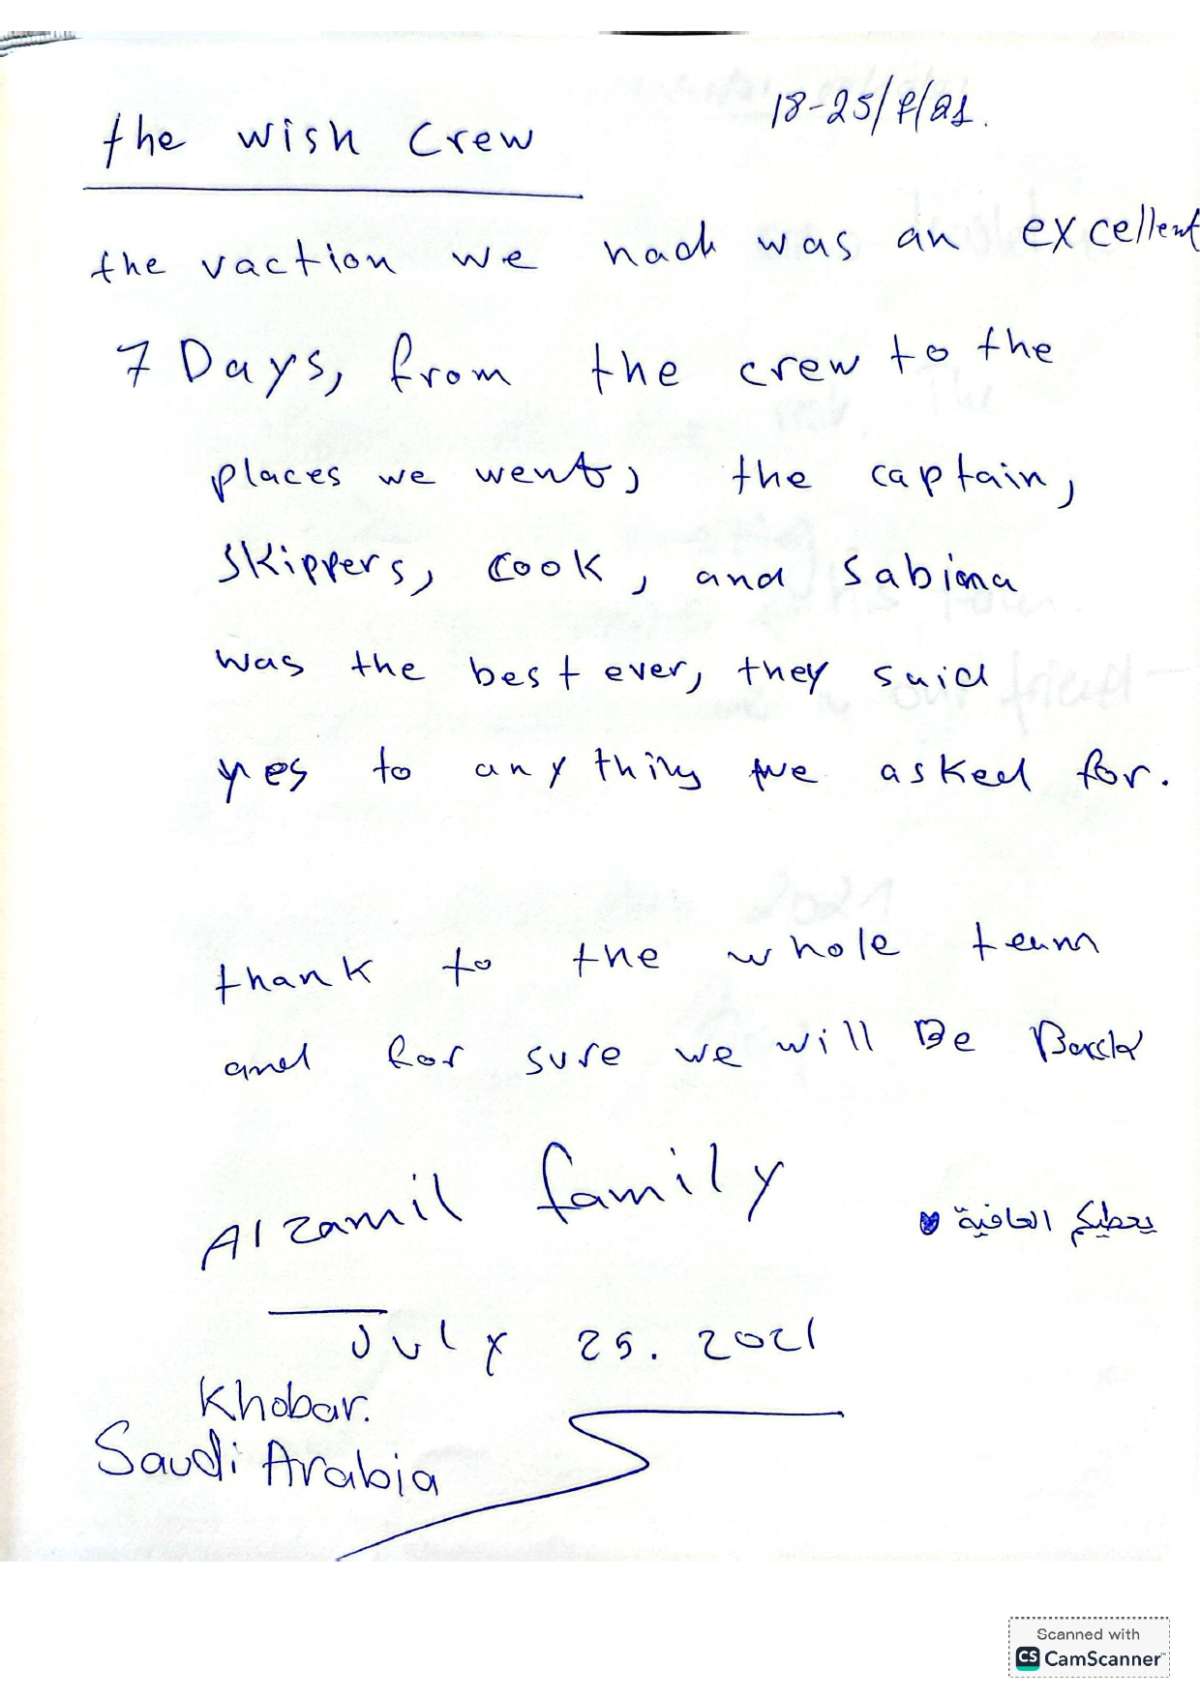 the wish crew
18-25/7/21.
the vaction we had was an excellent
7 Days, from the crew to the
places we went, the captain,
skippers, cook, and sabina
was the best ever, they said
yes to anything we asked for.
thank to the whole team
and for sure we will Be Back
Alzamil family
يعطيكم العافية
July 25. 2021
Khobar.
Saudi Arabia
Scanned with
CS CamScanner